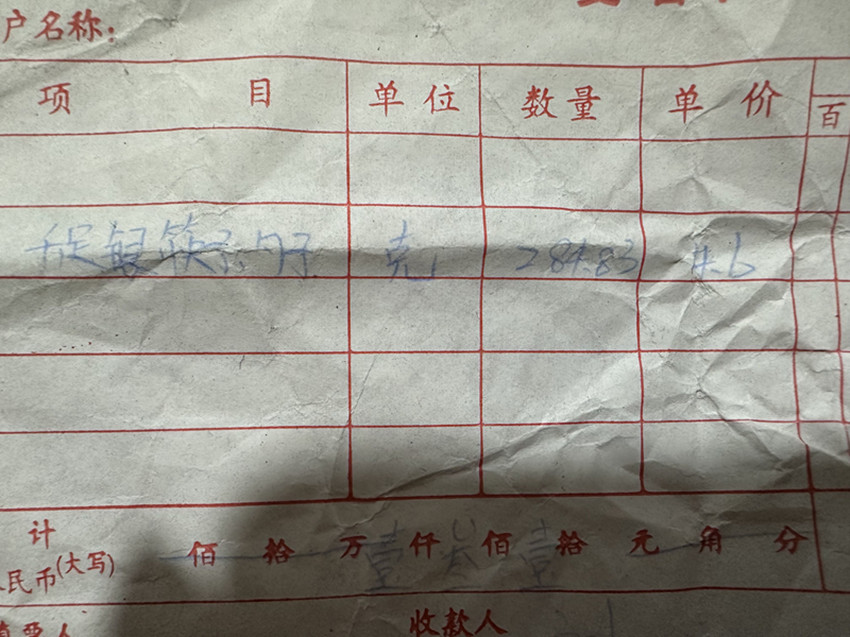 户名称:
项 目 单位 数量 单价
百
足银筷子.勺子 克 284.83 4.6
计 佰 拾 万壹仟叁佰壹拾 元 角 分
民币(大写)
收款人